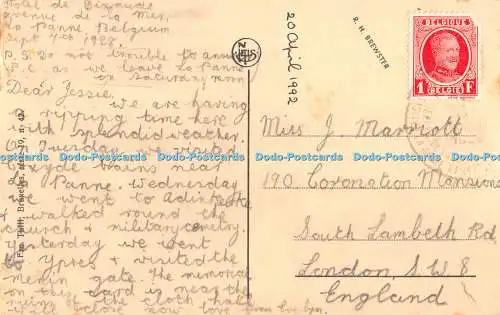 Hotel de Dixmude
avenue de la Mer,
La Panne Belgium
Sept 7th 1928.
P.S. Do not trouble to answer
P.C. as we leave La Panne
on Saturday morn
Dear Jessie,
we are having
a ripping time here
with splendid weather.
Tuesday we visited
Coxyde Bains near
La Panne. Wednesday
we went to Adinkerke
& walked round the
church & military cemetry.
Yesterday we went
to Ypres & visited the
Menin gate. The memorial
on this card is near the
ruins of the cloth hall
will close now love from
Fr. Thill, Bruxelles,
NELS
20 April 1992
R. H. BREWSTER
BELGIQUE
1 F
BELGIË
Miss J. Marriott
190 Coronation Mansions
South Lambeth Rd
London, S.W. 8
England
Do-Postcards Do-Postcards Do-Postcards Do-Postcards Do-Postcards Do-Postcards